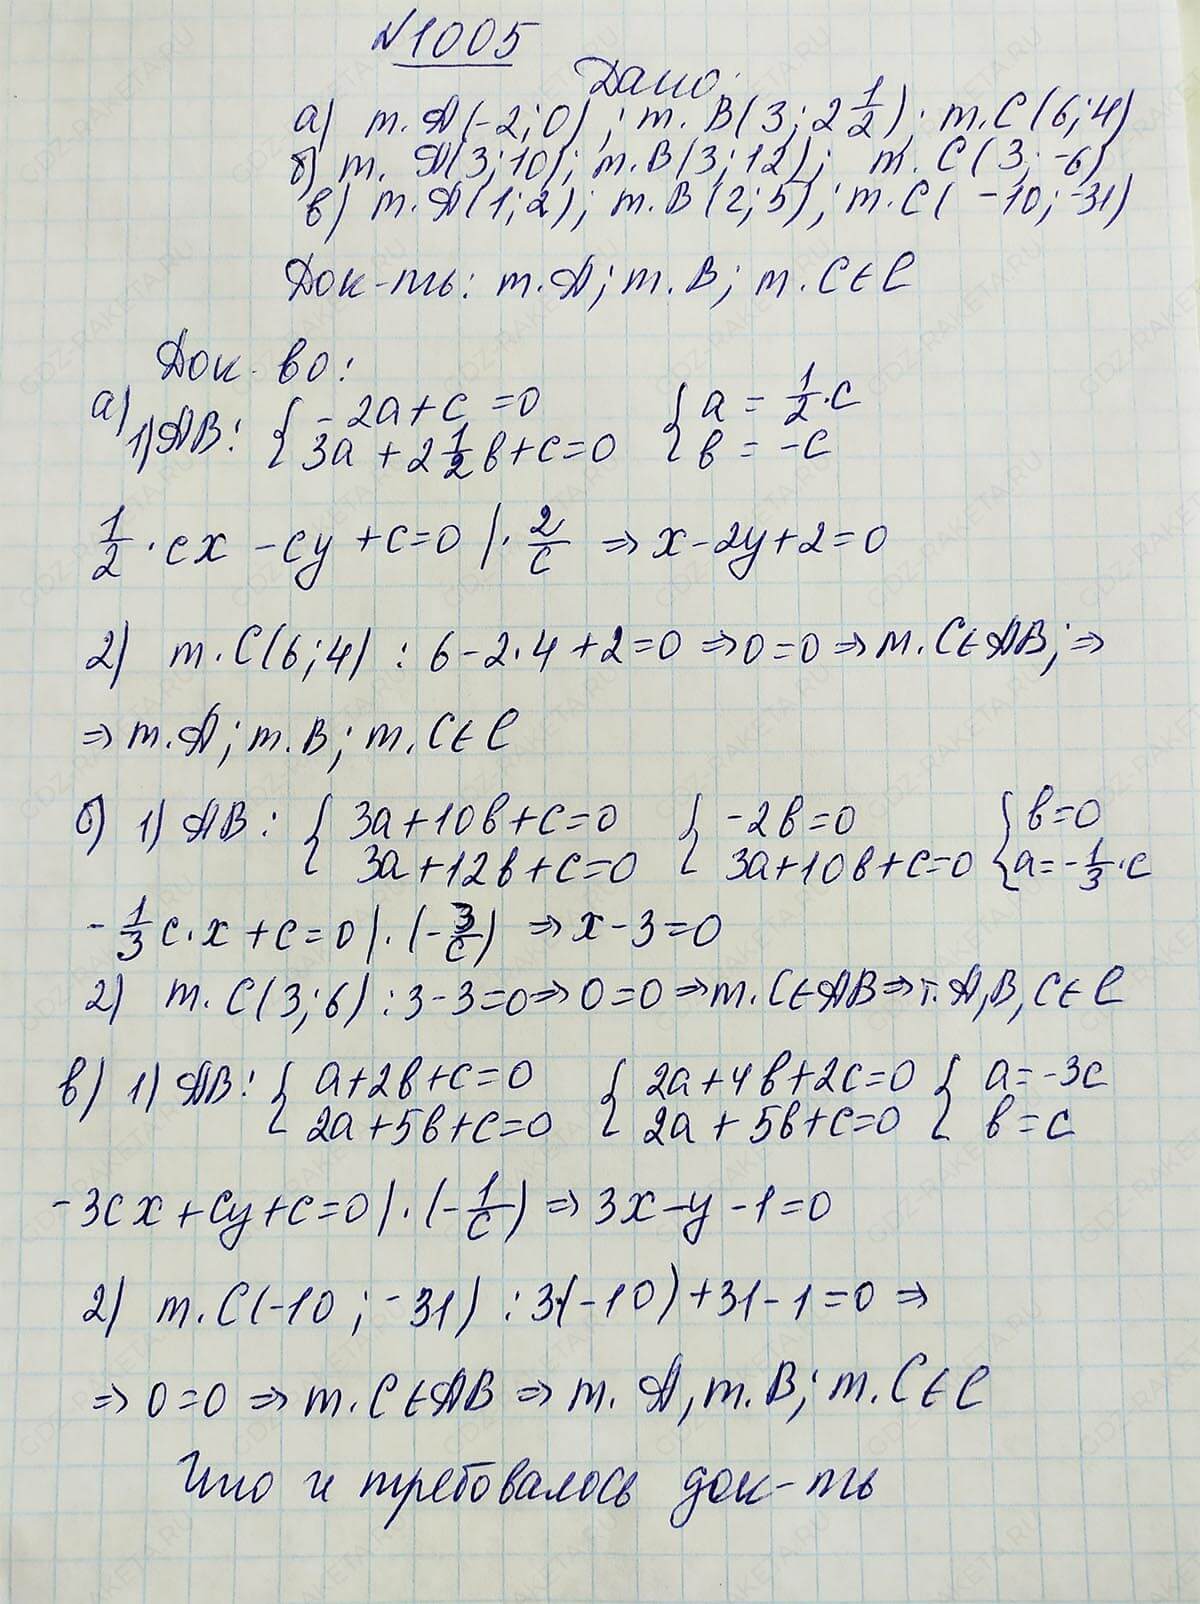 №1005
Дано:
а) т. А(-2; 0); т. В(3; 2 1/2); т. С(6; 4)
б) т. А(3; 10); т. В(3; 12); т. С(3; -6)
в) т. А(1; 2); т. В(2; 5); т. С(-10; -31)
Док-ть: т. А; т. В; т. С ∈ l
Док-во:
а) 1) АВ: { -2a + c = 0 { a = 1/2 · c
3a + 2 1/2 b + c = 0 b = -c
1/2 · cx - cy + c = 0 | · 2/c ⇒ x - 2y + 2 = 0
2) т. С(6; 4) : 6 - 2 · 4 + 2 = 0 ⇒ 0 = 0 ⇒ т. С ∈ АВ; ⇒
⇒ т. А; т. В; т. С ∈ l
б) 1) АВ: { 3a + 10b + c = 0 { -2b = 0 { b = 0
3a + 12b + c = 0 3a + 10b + c = 0 a = -1/3 · c
-1/3 c · x + c = 0 | · (-3/c) ⇒ x - 3 = 0
2) т. С(3; 6) : 3 - 3 = 0 ⇒ 0 = 0 ⇒ т. С ∈ АВ ⇒ т. А, В, С ∈ l
в) 1) АВ: { a + 2b + c = 0 { 2a + 4b + 2c = 0 { a = -3c
2a + 5b + c = 0 2a + 5b + c = 0 b = c
-3cx + cy + c = 0 | · (-1/c) ⇒ 3x - y - 1 = 0
2) т. С(-10; -31) : 3·(-10) + 31 - 1 = 0 ⇒
⇒ 0 = 0 ⇒ т. С ∈ АВ ⇒ т. А, т. В; т. С ∈ l
Что и требовалось док-ть
GDZ-RAKETA.RU